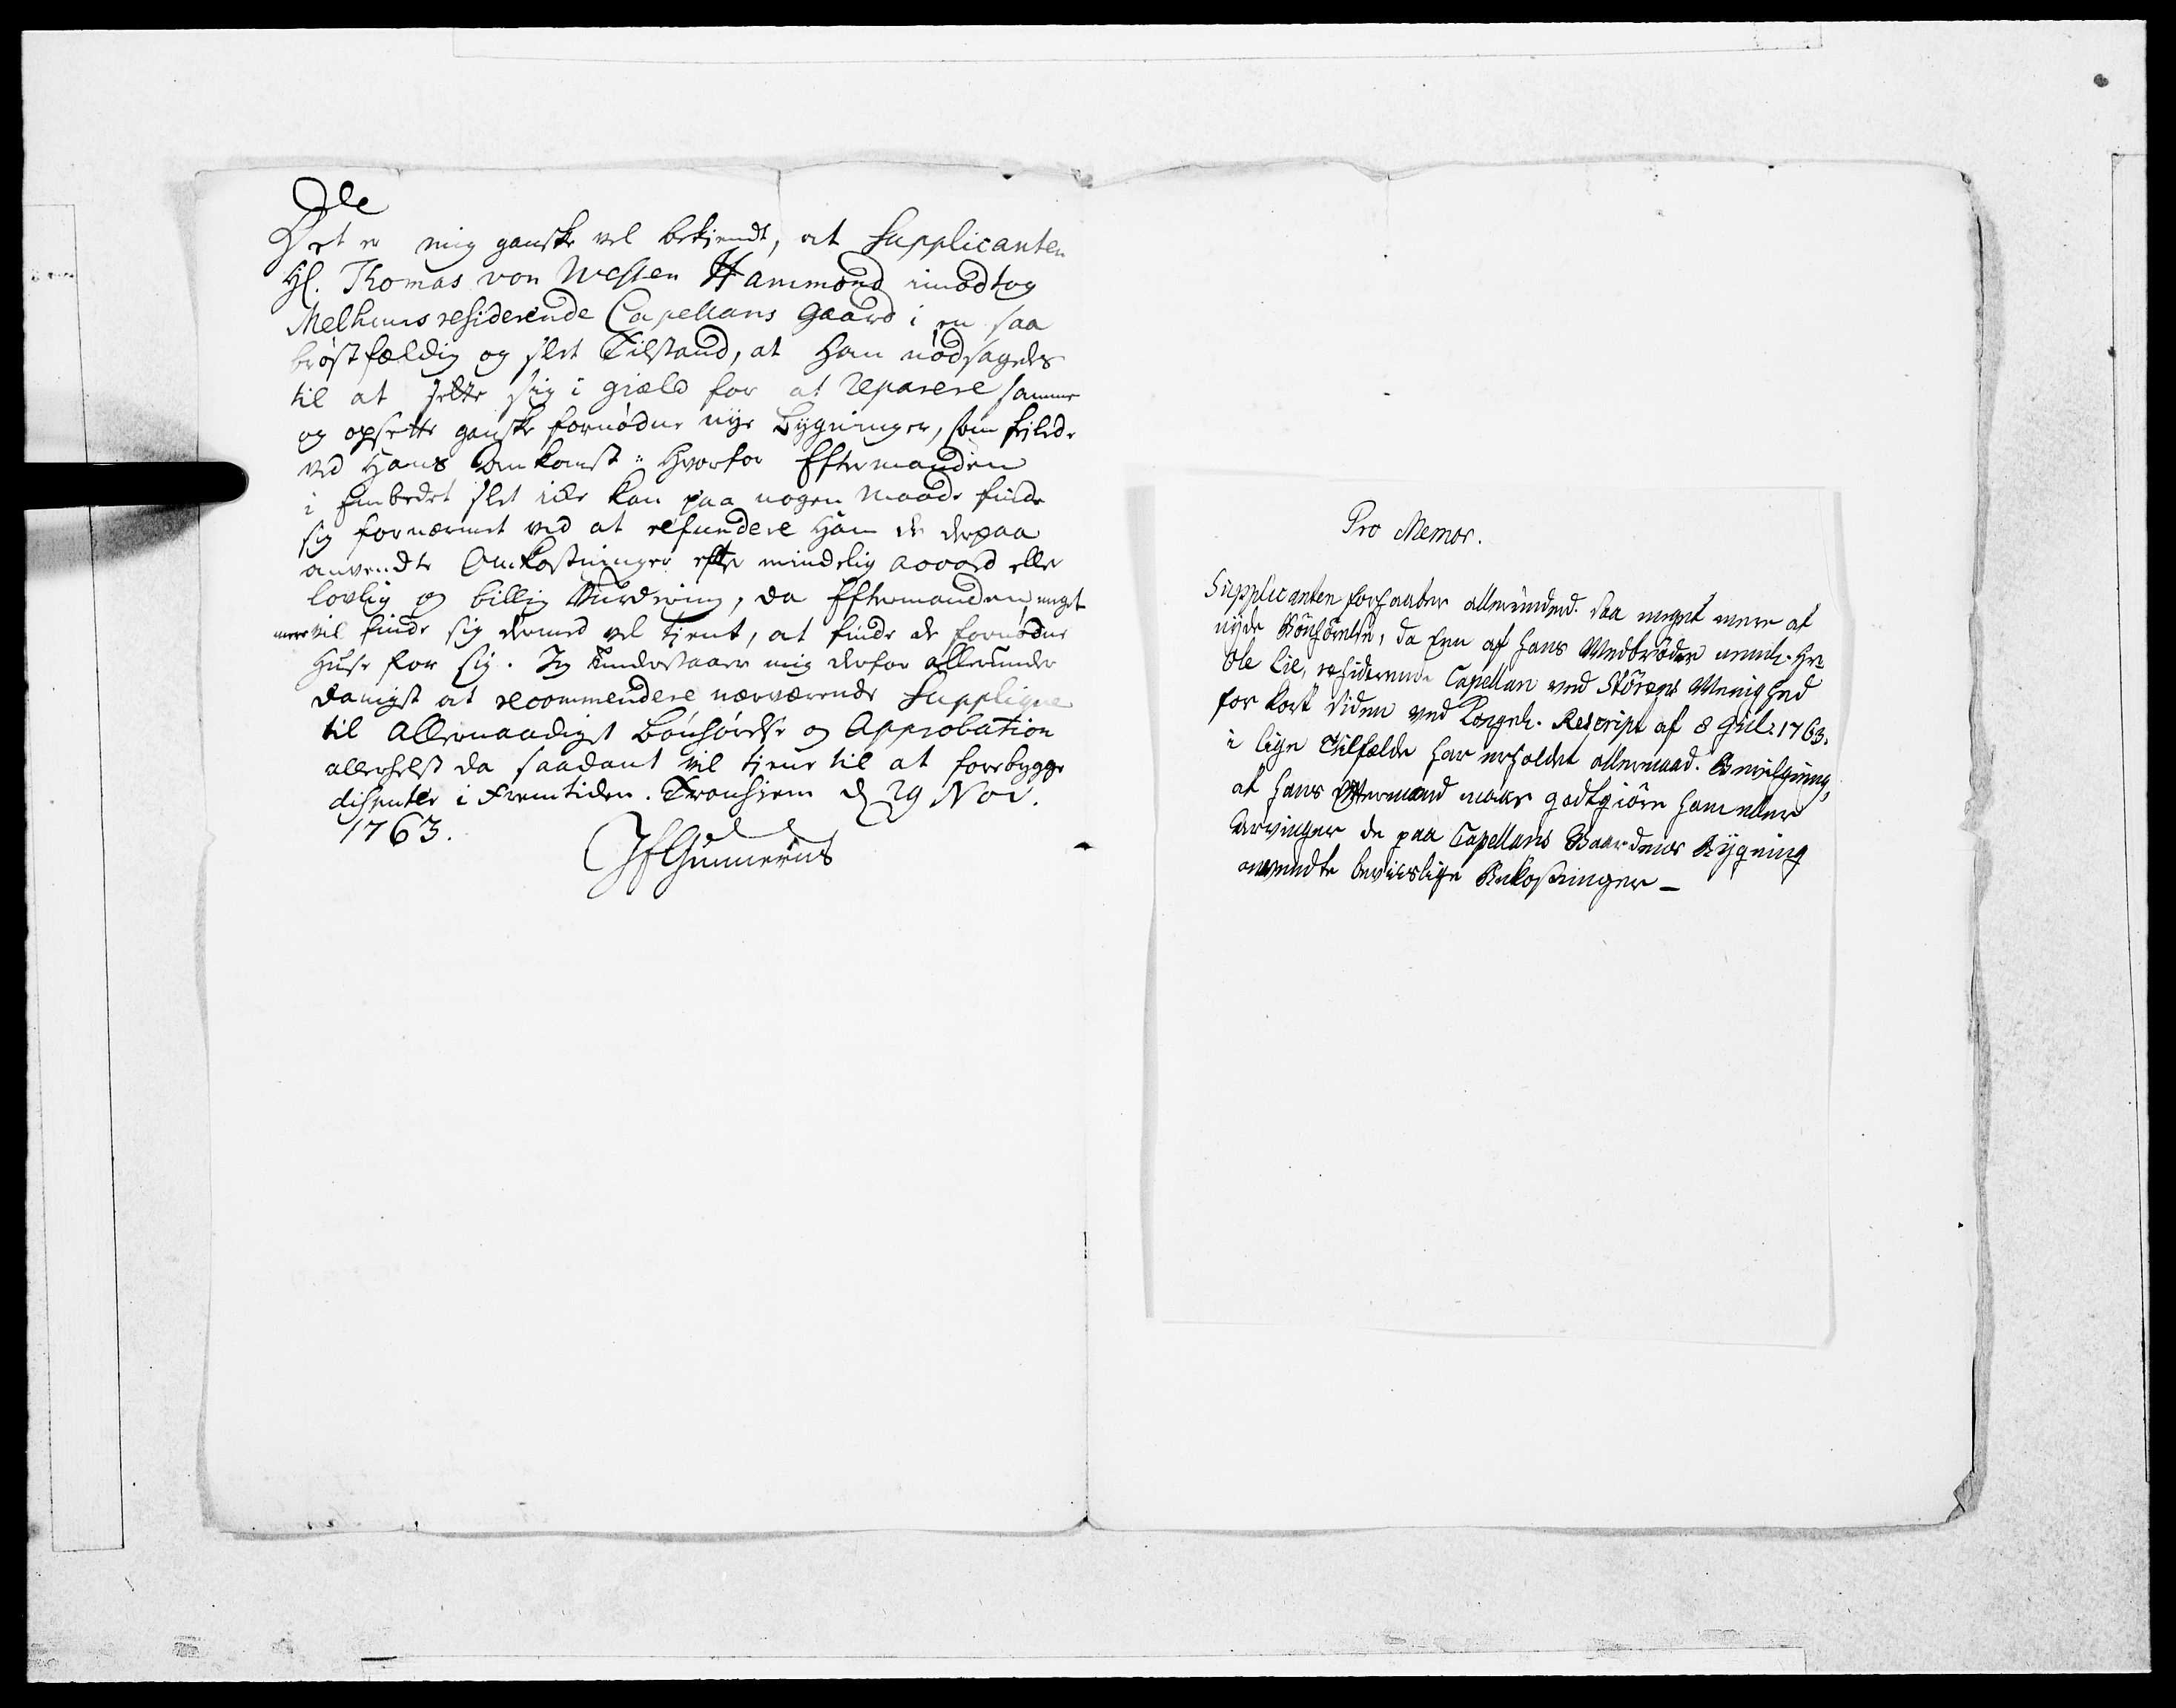 Det er mig ganske vel bekjendt, at Supplicanten
Hl. Thomas von Westen Hammond imodtog
Melhuus residerende Capellans Gaard i en saa
brøstfældig og slet Tilstand, at Han nødsagedes
til at sette sig i giæld for at reparere samme
og opsette ganske fornødne nye Bygninger, som feilede
ved Hans Ankomst: Hvorfor Eftermanden
i Embedet slet icke kan paa nogen Maade finde
sig fornærmet ved at refundere Ham de derpaa
anvendte Omkostninger efter mindelig accord eller
lovlig og billig Vurdering, da Eftermanden meget
mere vil finde sig dermed vel tient, at finde de fornødne
Huse for sig. Jeg understaaer mig derfor allerunder
danigst at recommendere nærværende Supplique
til Allernaadigst Bønhørelse og Approbation
allerhelst da saadant vil tiene til at forebygge
disputer i Fremtiden. Tronhiem d 29 Nov.
1763.
JEGunnerus
Pro Memor.
Supplicanten forhaaber allerunderd. saa meget mere at
nyde Bønhørelse, da Een af hans Medbrødre nemlig Hr.
Ole Lie, residerende Capellan ved Størens Menighed
for kort siden ved Kongel. Rescript af 8 Jul. 1763.
i lige Tilfælde har erholdet allernaad. Bevilgning,
at hans Eftermand maae godtgiøre ham eller
Arvinger de paa Capellans Gaardens Bygning
anvendte beviislige Bekostninger _